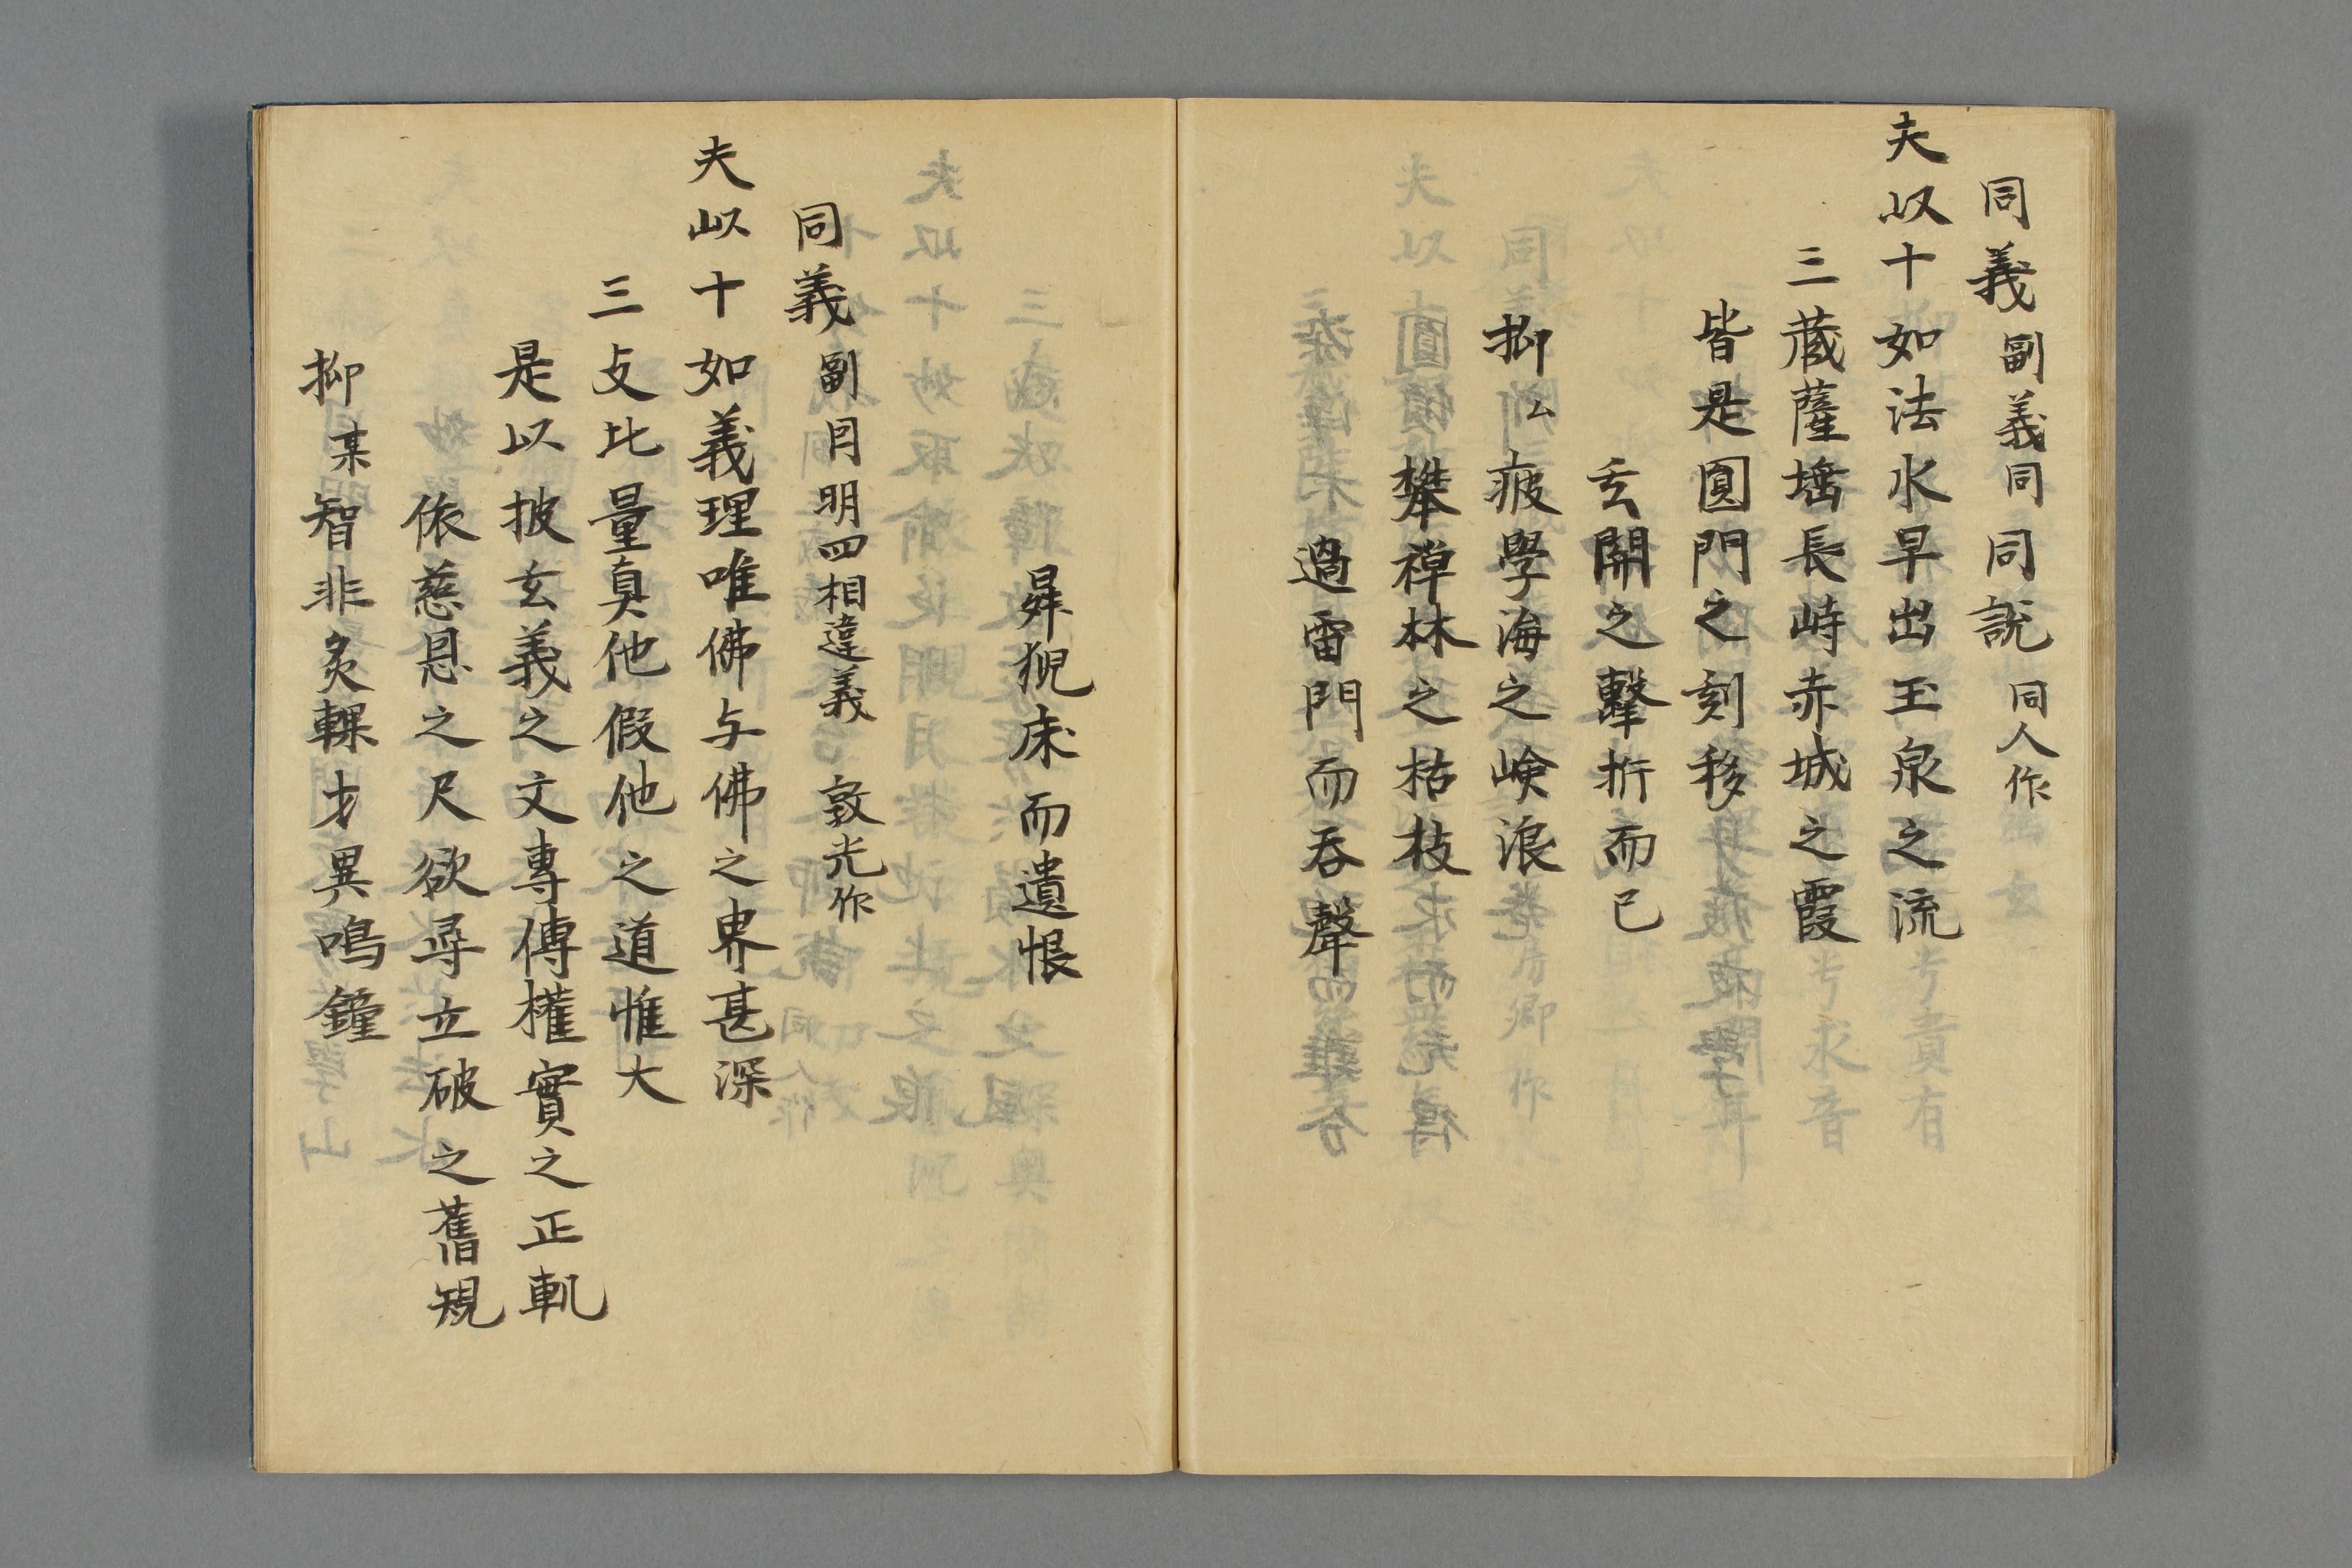 同義副義同同說同人作
夫以十如法水早出玉泉之流
三蔵薩埵長峙赤城之霞
皆是圓門之刻移
玄開之鑿折而已
抑厶疲學海之嶮浪
攀禅林之枯枝
過雷門而吞聲
昇猊床而遺恨
同義副因明四相違義 敦光作
夫以十如義理唯佛与佛之界甚深
三支比量真他假他之道惟大
是以披玄義之文專傳權實之正軌
依慈恩之尺欲尋立破之舊規
抑某智非炙輠才異鳴鐘